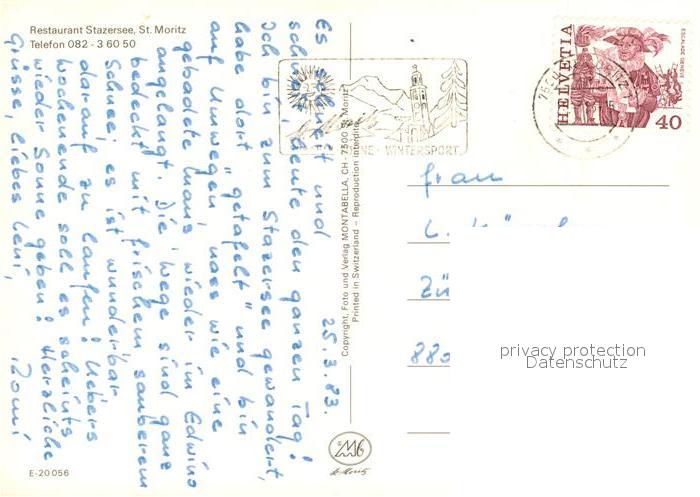 Restaurant Stazersee, St. Moritz
Telefon 082 - 3 60 50
25.3.83.
Es schneit und
schneit, heute den ganzen Tag!
Ich bin zum Stazersee gewandert,
habe dort "getafelt" und bin
auf Umwegen nass wie eine
gebadete Maus wieder im Edwino
angelangt. Die Wege sind ganz
bedeckt mit frischem sauberem
Schnee; es ist wunderbar
darauf zu laufen! Uebers
Wochenende soll es scheints
wieder Sonne geben! Herzliche
Grüsse, liebes Leni,
Romi
Copyright, Foto und Verlag MONTABELLA, CH-7500 St. Moritz
Printed in Switzerland – Reproduction interdite
WINTERSPORT
HELVETIA
ESCALADE GENÈVE
40
Frau
L.
Zü
880
privacy protection
Datenschutz
M6
St. Moritz
E-20 056